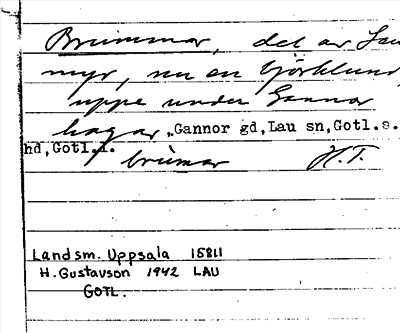 Brummar, del av Lau
myr, nu en björklund
uppe under Gannor
hagar, Gannor gd, Lau sn, Gotl. s.
hd, Gotl. l.
brùmar H.T.
Landsm. Uppsala 15811
H. Gustavson 1942 LAU
GOTL.